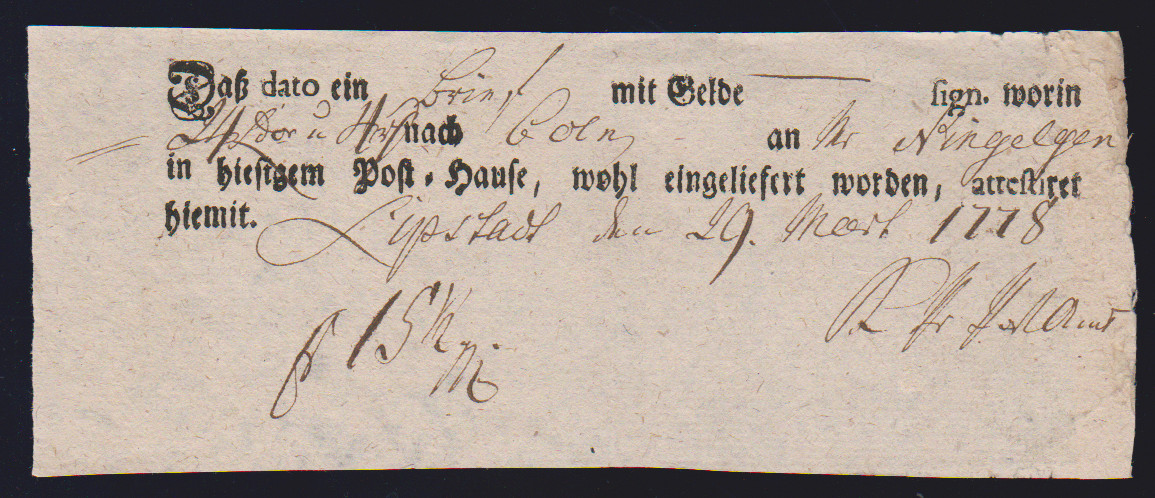 Daß dato ein Brief mit Gelde sign. worin
nach Coln an Mr Ringelgen
in hiesigem Post-Hause, wohl eingeliefert worden, attestiret
hiemit. Lipstadt den 29. Mart 1778